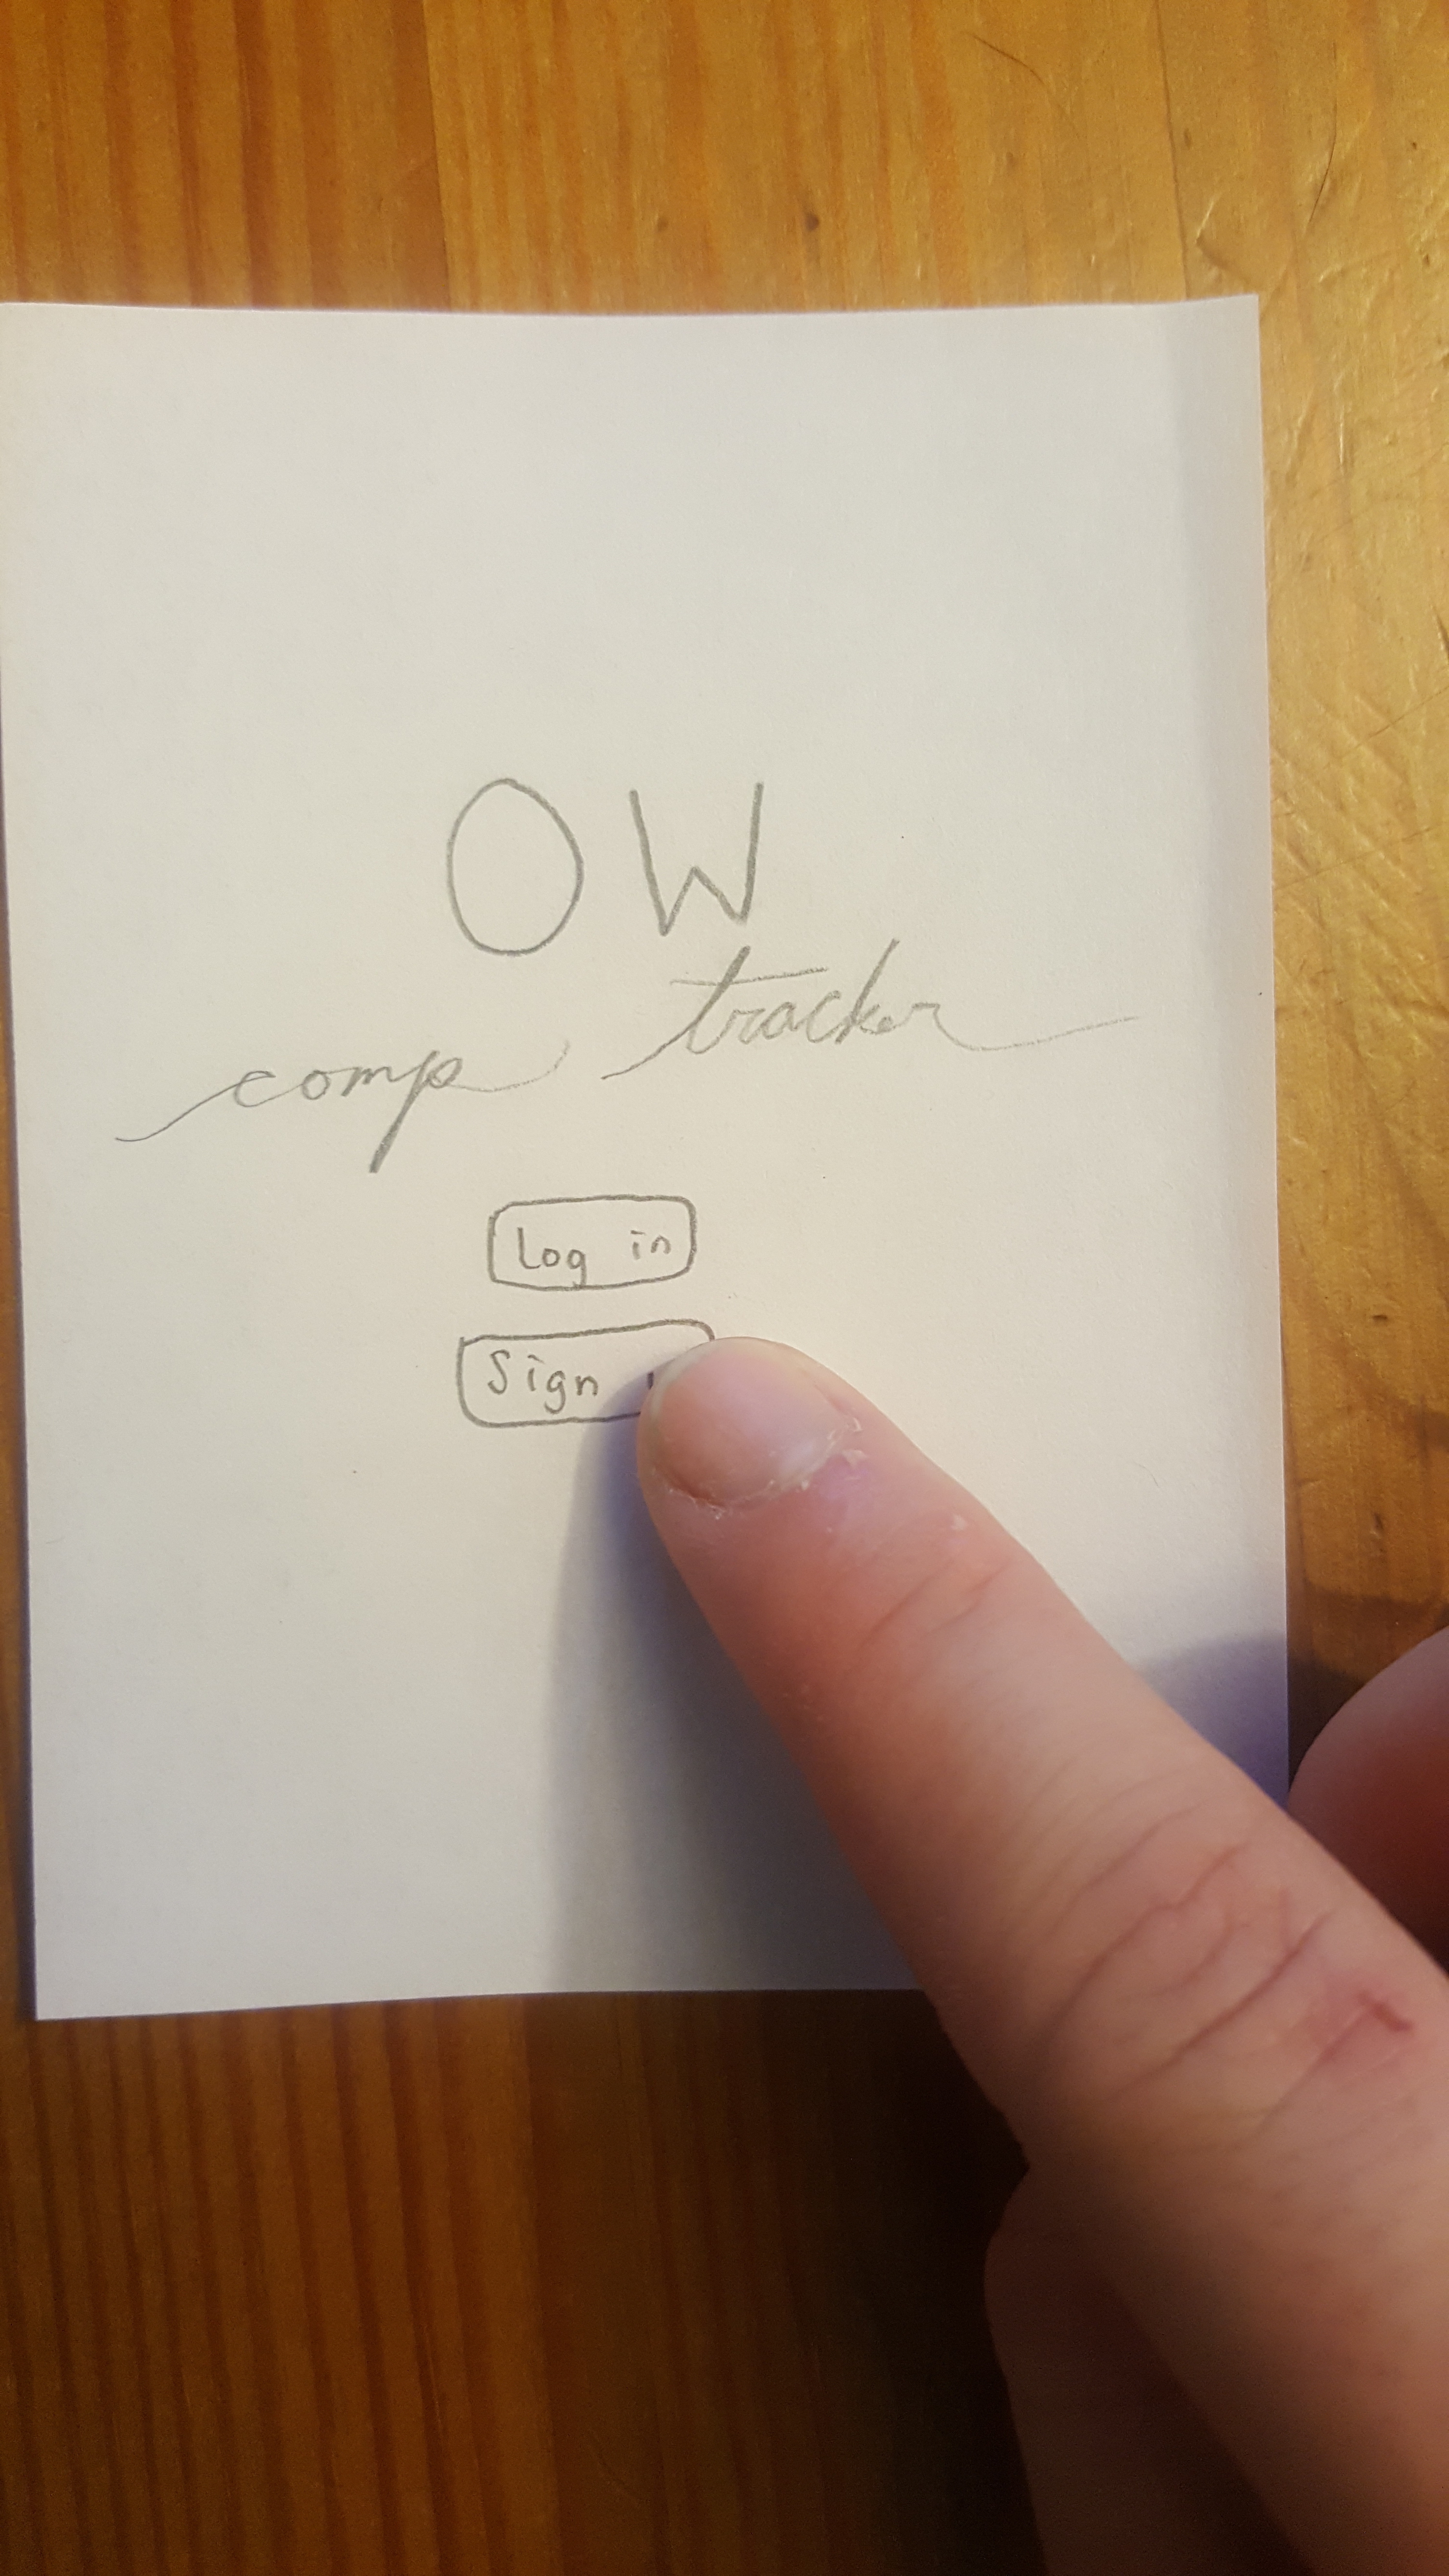 OW
comp tracker
Log in
Sign